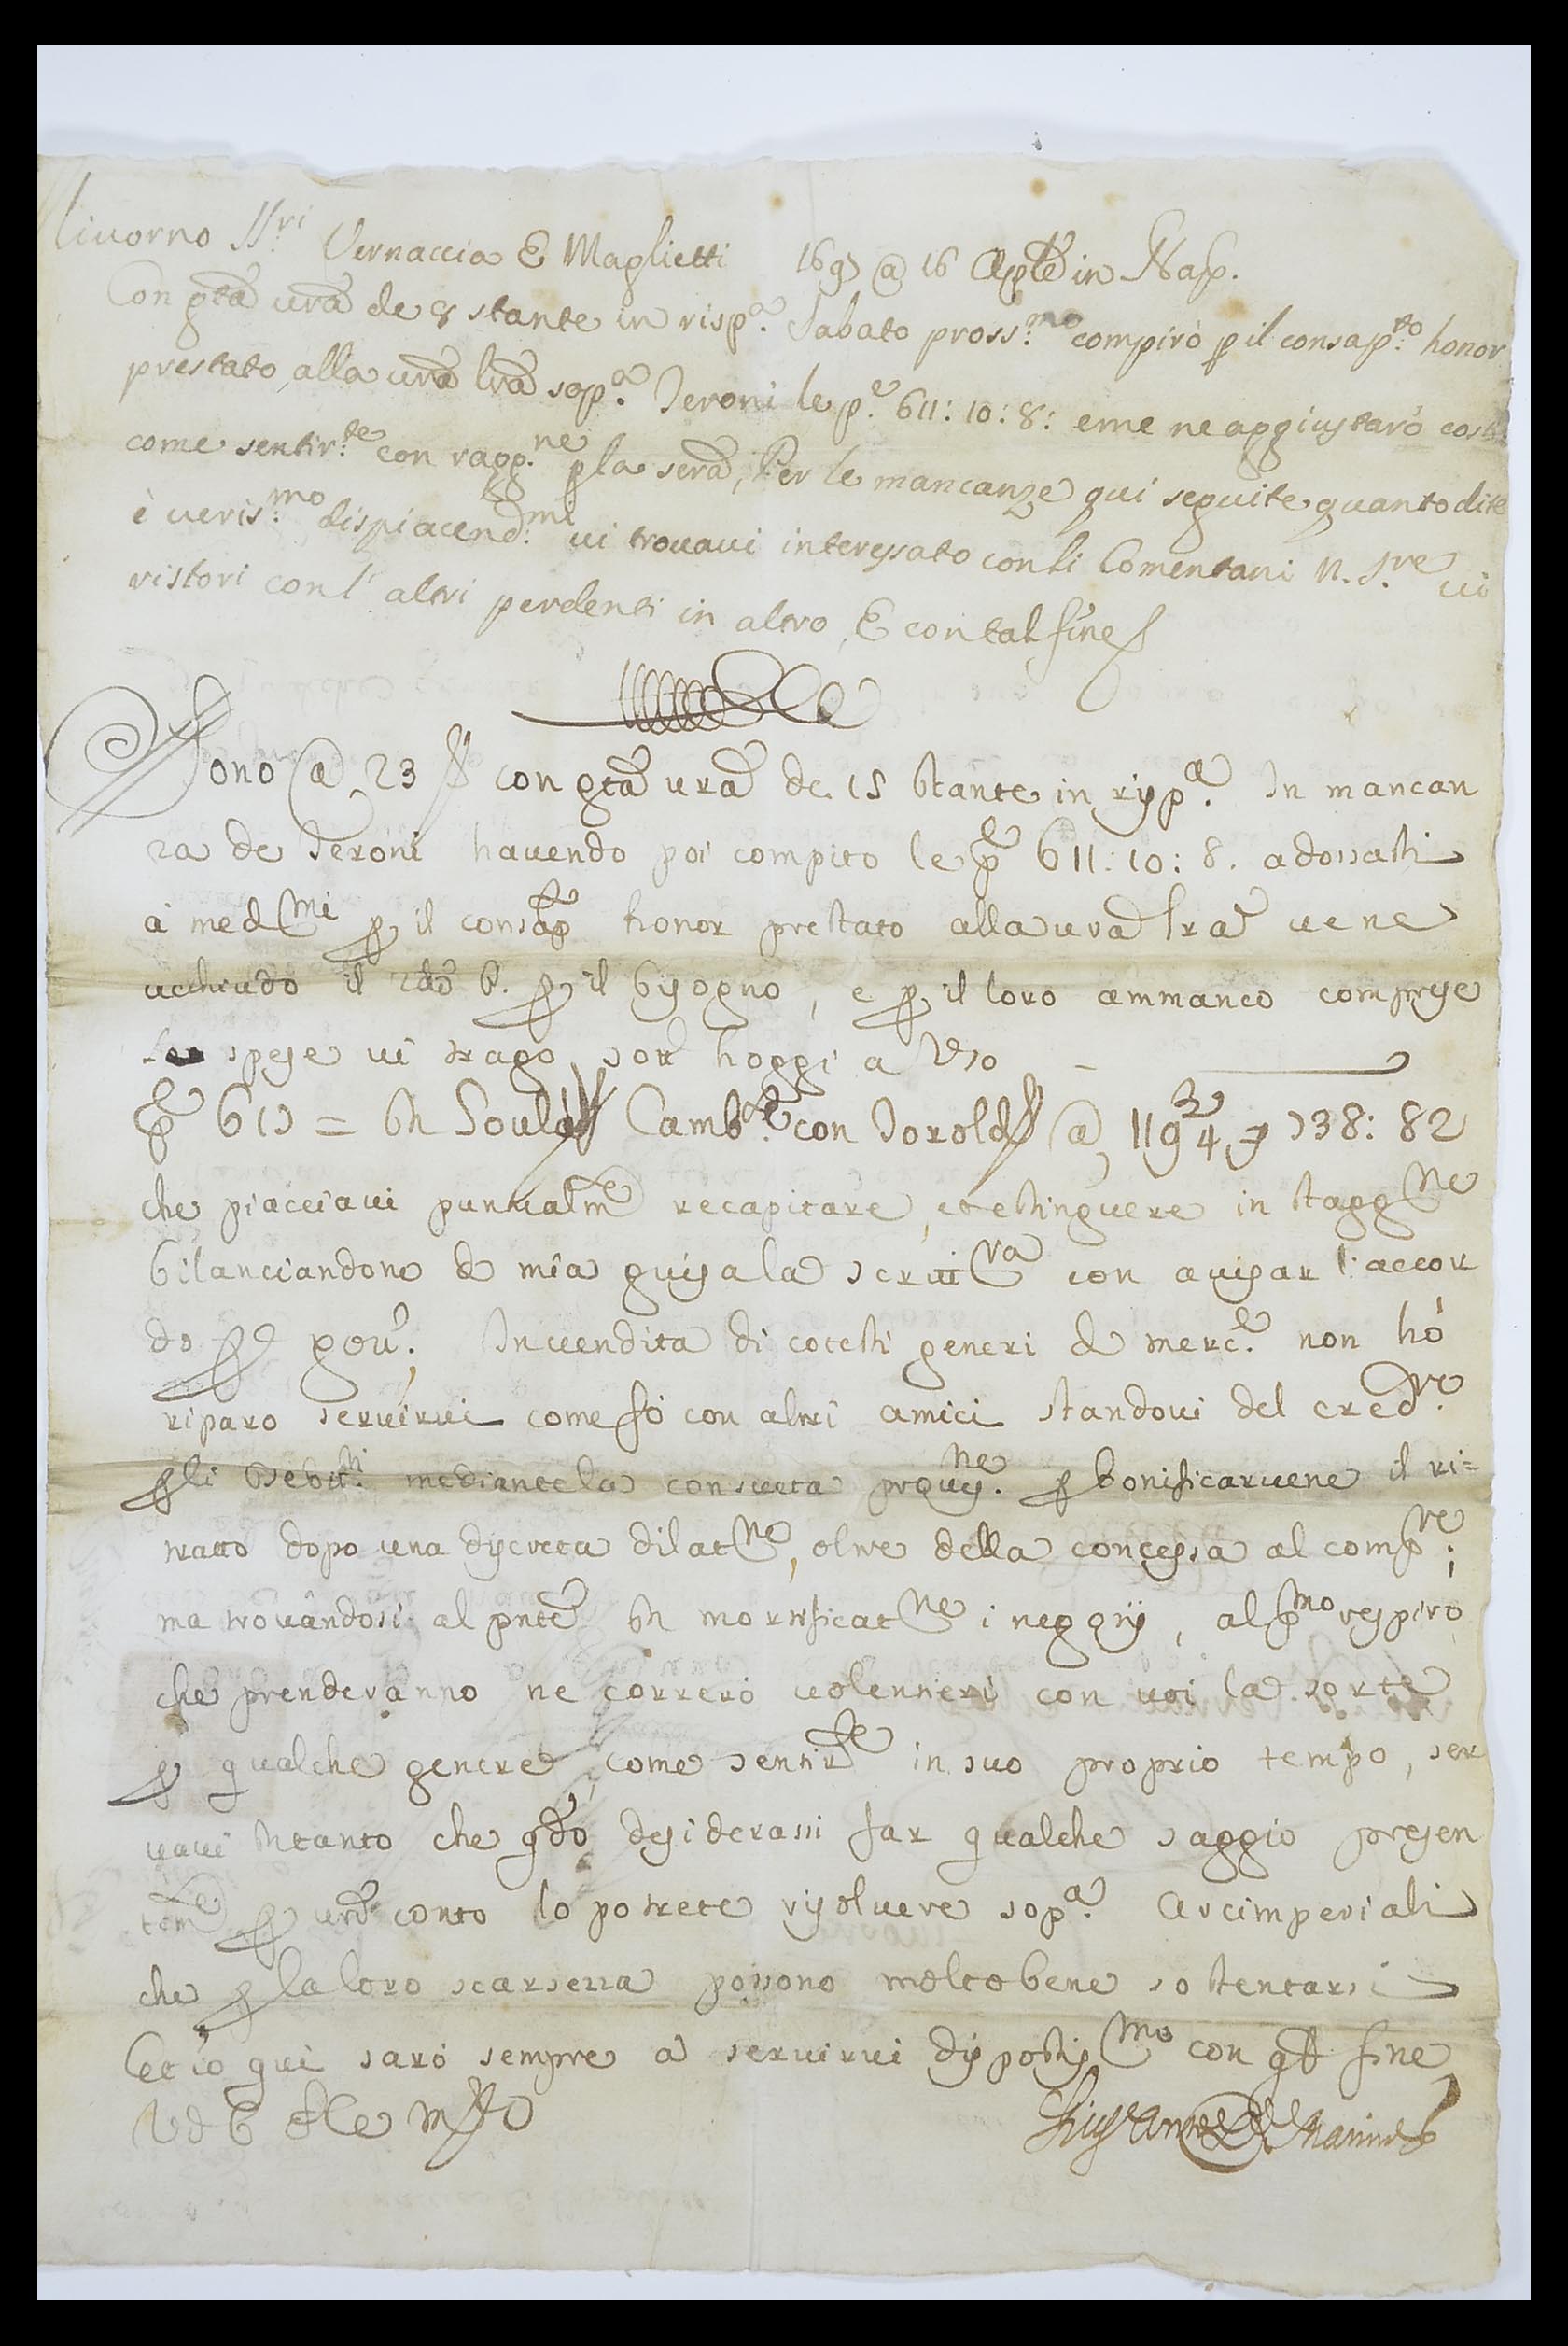 Liuorno SS.ri Vernaccia E Maglietti 1695 @ 16 Aple in Nap.
Con gta ura de 8 stante in risp.a Sabato pross.mo compirò p il consap.to honor
prestato alla ura lra sop.a Jeroni le p.e 611: 10: 8: e me ne aggiustarò costì
come sentir.te con ragg.ne p la sera, Per le mancanze qui seguite quanto dite
è ueris.mo dispiacend.mi ui trouaui interessato con li Comentani N. S.re ui
ristori con l'altri perdenti in altro, E con tal fine
Sono @ 23 con gta ura de 15 stante in risp.a In mancan
za de Jeroni hauendo poi compito le p.e 611: 10: 8. adossatti
à med.mi p il consap.te honor prestato alla ura lra ue ne
acchiudo il p. p il bisogno, e p il loro ammanco comprese
spese ui trago sott hoggi a Uso
p.e 615 = in Soulà Camb.te con Jorold @ 119 3/4 738: 82
che piacciaui puntualm.e recapitare, et estinguere in ragg.ne
bilanciandone de mia guisa la scritt.ra con auisar l'accor
do p gou.o In uendita di cotesti generi de merc.e non hò
riparo seruirui come fò con altri amici standoui del cred.re
p li Debit.ri mediante la consueta prouis.ne p bonificaruene il ri=
tratto dopo una discreta dilat.ne, oltre della concessa al comp.re;
ma trouandosi al pnte in mortificat.ne i neggij, al p.mo respiro
che prenderanno ne correrò uolentieri con uoi la sorte
p qualche genere, come sentir.te in suo proprio tempo, ser
uaui intanto che qdo desiderassi far qualche saggio presen
tem.e p uro conto lo potrete risoluere sop.a Arcimperiali
che p la loro scarsezza possono molto bene sostentarsi
et io qui sarò sempre a seruirui dispostis.mo con qt fine